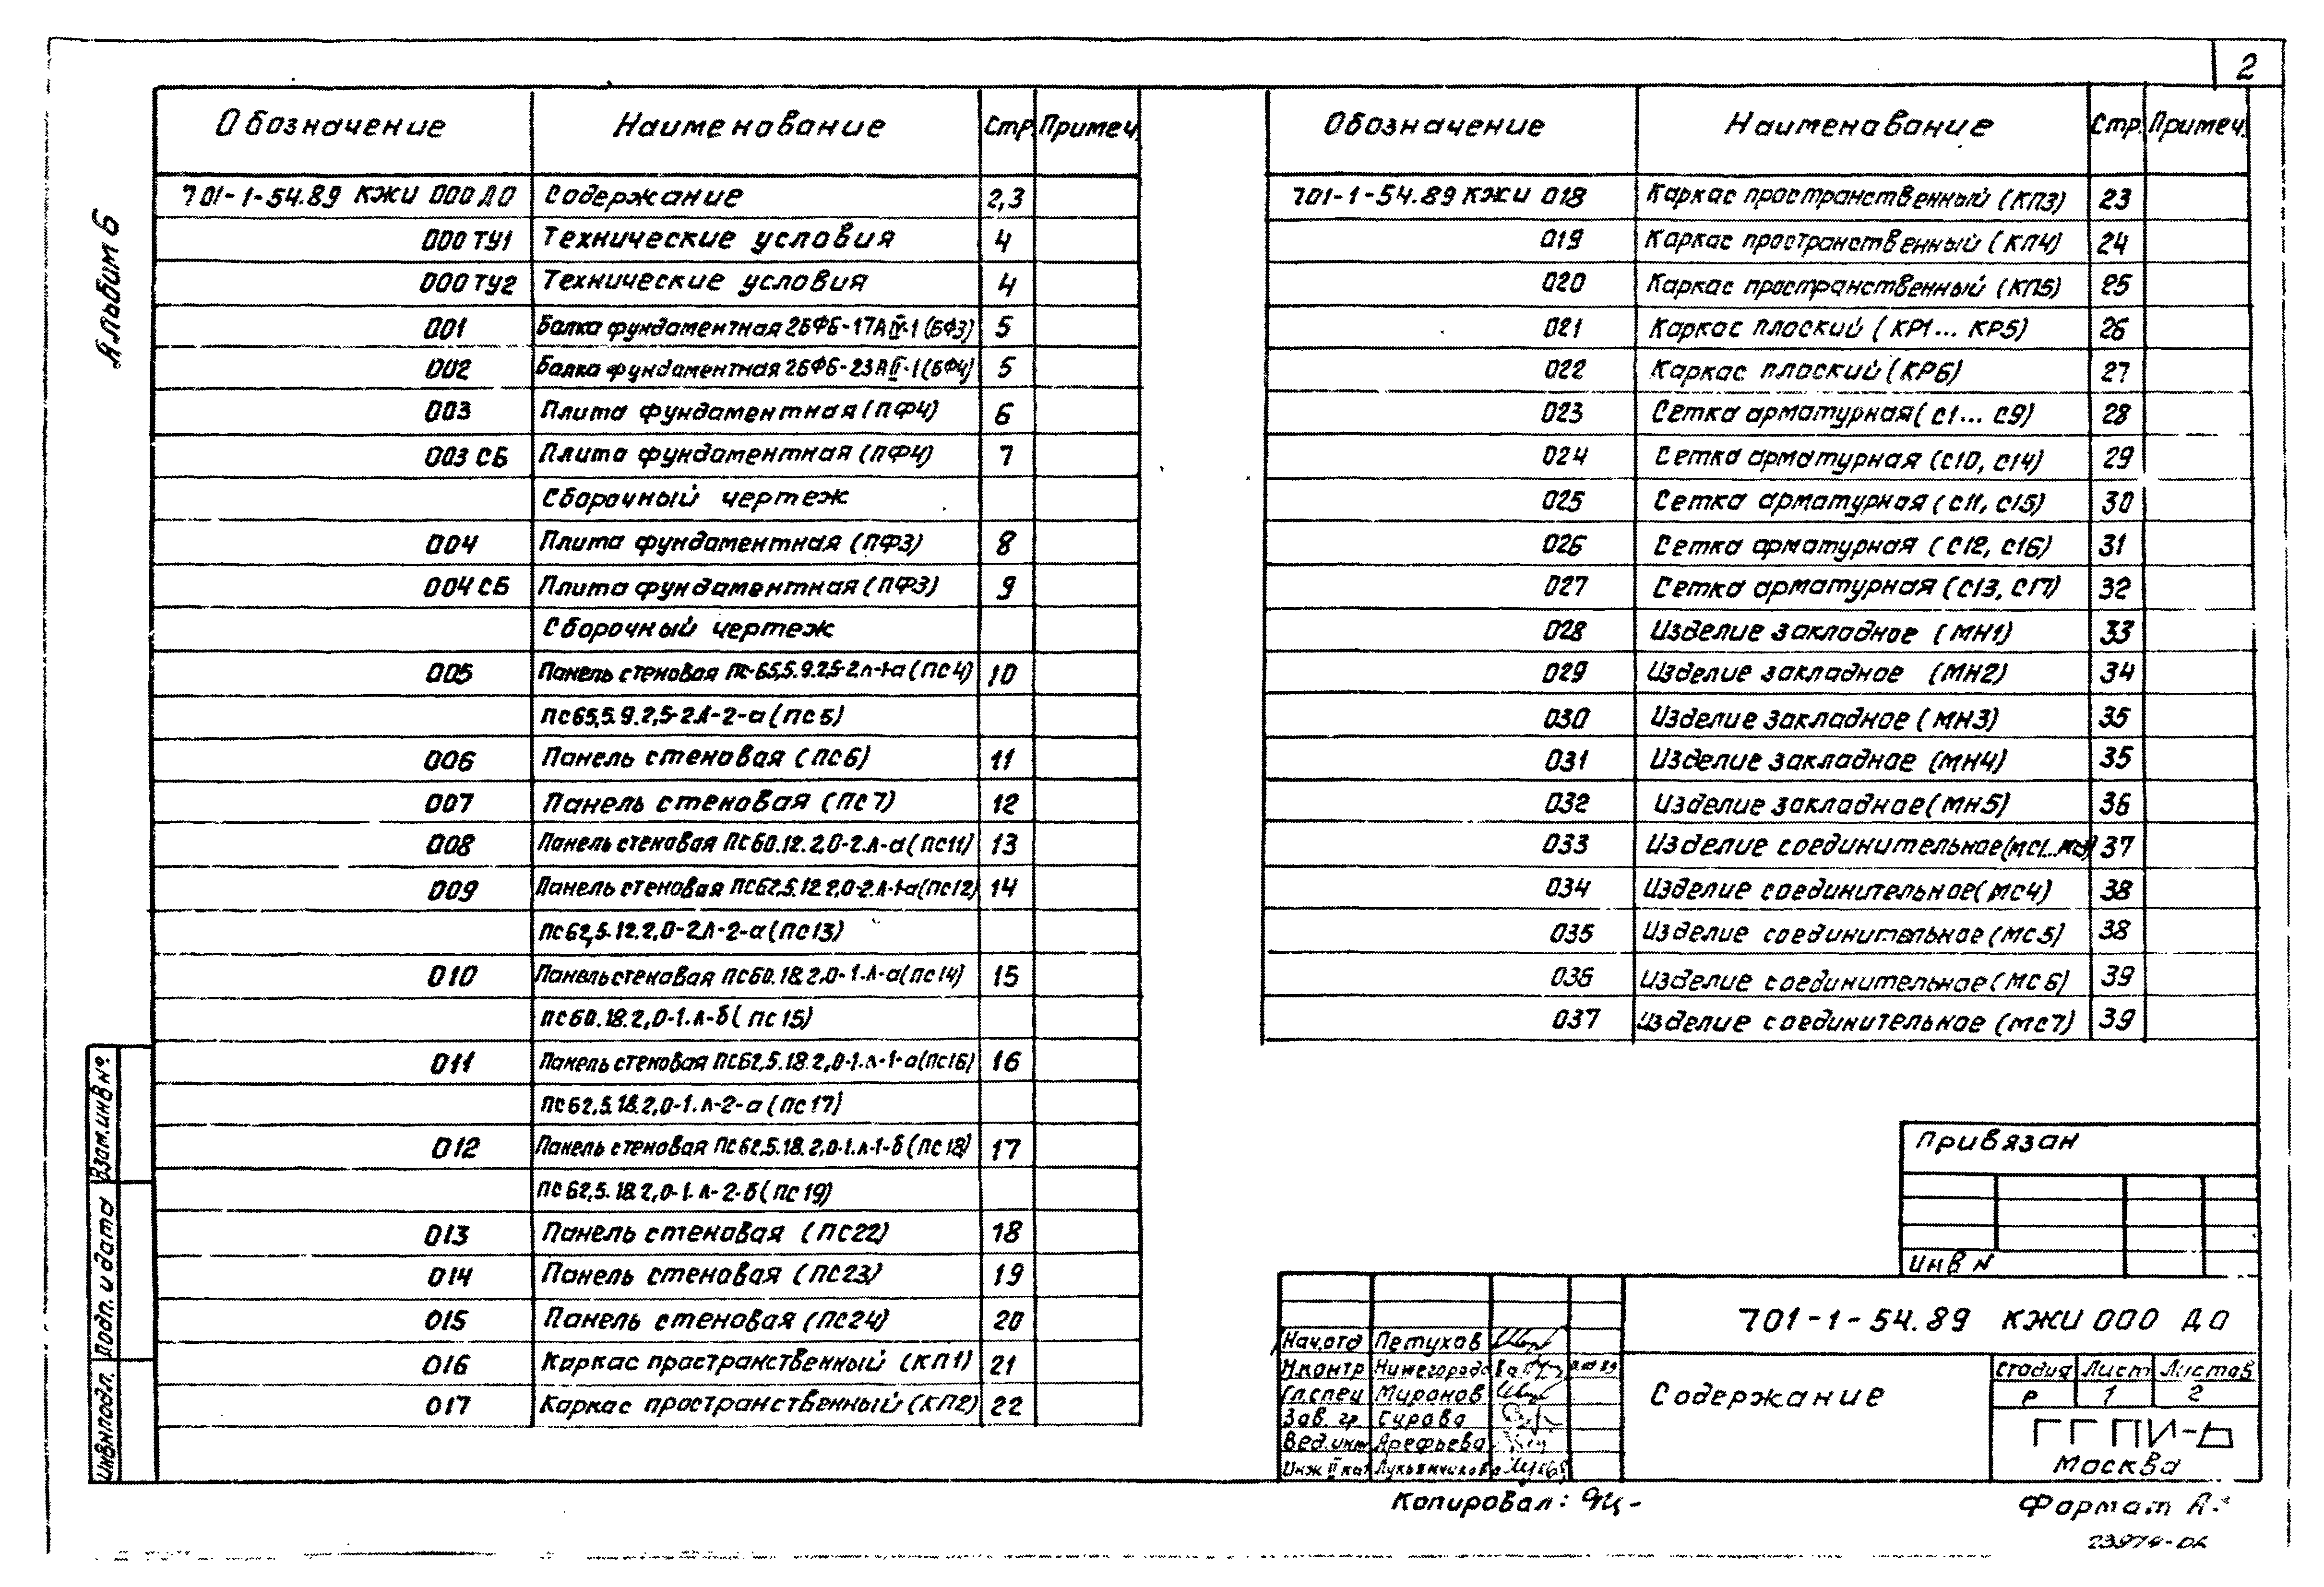 2
Альбом 6
Обозначение Наименование Стр. Примеч.
701-1-54.89 КЖИ 000 ДО Содержание 2,3
000 ТУ1 Технические условия 4
000 ТУ2 Технические условия 4
001 Балка фундаментная 2БФ6-17АIV-1 (БФ3) 5
002 Балка фундаментная 2БФ6-23АII-1 (БФ4) 5
003 Плита фундаментная (ПФ4) 6
003 СБ Плита фундаментная (ПФ4) 7
Сборочный чертеж
004 Плита фундаментная (ПФ3) 8
004 СБ Плита фундаментная (ПФ3) 9
Сборочный чертеж
005 Панель стеновая ПС-65,5.9.2,5-2л-1-а (ПС4) 10
ПС65,5.9.2,5-2.л-2-а (ПС5)
006 Панель стеновая (ПС6) 11
007 Панель стеновая (ПС7) 12
008 Панель стеновая ПС60.12.2,0-2.л-а (ПС11) 13
009 Панель стеновая ПС62,5.12.2,0-2.л-1-а (ПС12) 14
ПС62,5.12.2,0-2.л-2-а (ПС13)
010 Панель стеновая ПС60.18.2,0-1.л-а (ПС14) 15
ПС60.18.2,0-1.л-б (ПС15)
011 Панель стеновая ПС62,5.18.2,0-1.л-1-а (ПС16) 16
ПС62,5.18.2,0-1.л-2-а (ПС17)
012 Панель стеновая ПС62,5.18.2,0-1.л-1-б (ПС18) 17
ПС62,5.18.2,0-1.л-2-б (ПС19)
013 Панель стеновая (ПС22) 18
014 Панель стеновая (ПС23) 19
015 Панель стеновая (ПС24) 20
016 Каркас пространственный (КП1) 21
017 Каркас пространственный (КП2) 22
Обозначение Наименование Стр. Примеч.
701-1-54.89 КЖИ 018 Каркас пространственный (КП3) 23
019 Каркас пространственный (КП4) 24
020 Каркас пространственный (КП5) 25
021 Каркас плоский (КР1... КР5) 26
022 Каркас плоский (КР6) 27
023 Сетка арматурная (С1... С9) 28
024 Сетка арматурная (С10, С14) 29
025 Сетка арматурная (С11, С15) 30
026 Сетка арматурная (С12, С16) 31
027 Сетка арматурная (С13, С17) 32
028 Изделие закладное (МН1) 33
029 Изделие закладное (МН2) 34
030 Изделие закладное (МН3) 35
031 Изделие закладное (МН4) 35
032 Изделие закладное (МН5) 36
033 Изделие соединительное (МС1... 37
034 Изделие соединительное (МС4) 38
035 Изделие соединительное (МС5) 38
036 Изделие соединительное (МС6) 39
037 Изделие соединительное (МС7) 39
Привязан
Инв N
701-1-54.89 КЖИ 000 ДО
Нач.отд Петухов
Н.контр Нижегородова
Гл.спец Миронов
Зав. гр. Сурова
Вед.инж Арефьева
Инж II кат Лукьянчикова
Содержание
Стадия Лист Листов
Р 1 2
ГГПИ-
Москва
Взам.инв №
Подп. и дата
Инв.№ подл.
Копировал:
Формат А